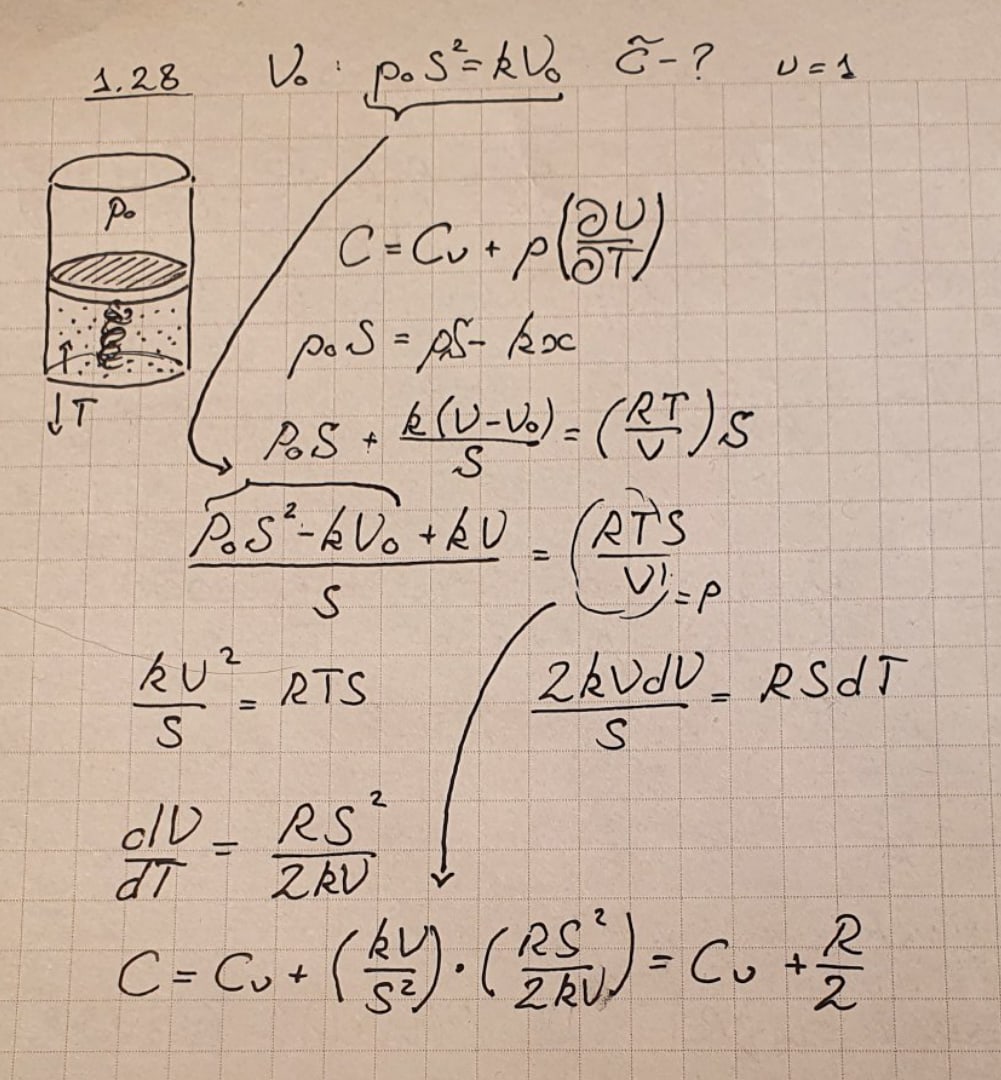 1.28 V₀ : p₀S² = kV₀ C̃ - ? ν = 1
p₀
T
C = Cᵥ + p(∂V/∂T)
p₀S = pS - kx
p₀S + k(V - V₀)/S = (RT/V)S
(p₀S² - kV₀ + kV)/S = (RTS/V) = p
kV²/S = RTS 2kVdV/S = RSdT
dV/dT = RS²/2kV
C = Cᵥ + (kV/S²) · (RS²/2kV) = Cᵥ + R/2